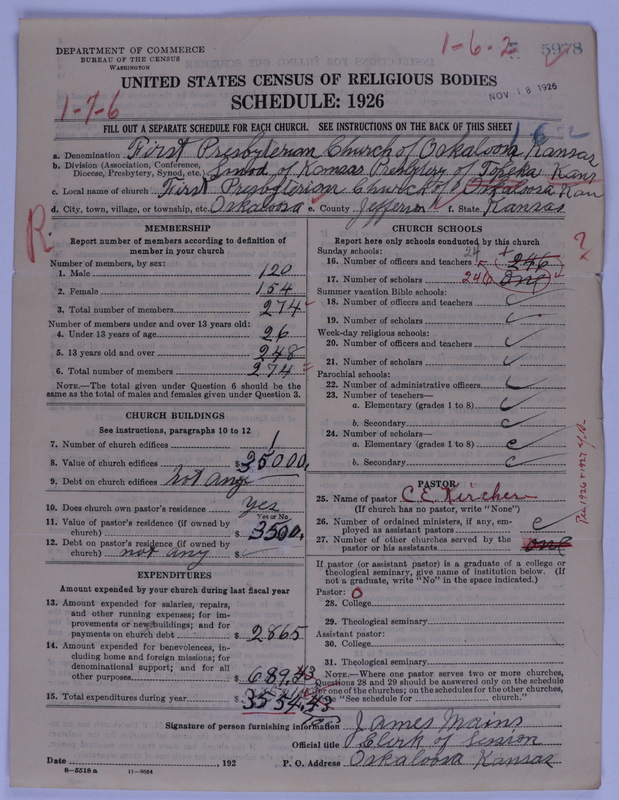 DEPARTMENT OF COMMERCE
BUREAU OF THE CENSUS
WASHINGTON
1-6-2
5978
UNITED STATES CENSUS OF RELIGIOUS BODIES
SCHEDULE: 1926
NOV 18 1926
1-7-6
FILL OUT A SEPARATE SCHEDULE FOR EACH CHURCH. SEE INSTRUCTIONS ON THE BACK OF THIS SHEET
a. Denomination First Presbyterian Church of Oskaloosa Kansas
b. Division (Association, Conference, Diocese, Presbytery, Synod, etc.) Synod of Kansas Presbytery of Topeka Kans
c. Local name of church First Presbyterian Church of Oskaloosa Kan
d. City, town, village, or township, etc. Oskaloosa e. County Jefferson f. State Kansas
R
MEMBERSHIP
Report number of members according to definition of
member in your church
Number of members, by sex:
1. Male 120
2. Female 154
3. Total number of members 274
Number of members under and over 13 years old:
4. Under 13 years of age 26
5. 13 years old and over 248
6. Total number of members 274
NOTE.—The total given under Question 6 should be
same as the total of males and females given under Question 3.
CHURCH BUILDINGS
See instructions, paragraphs 10 to 12
7. Number of church edifices 1
8. Value of church edifices $35000.
9. Debt on church edifices not any $
10. Does church own pastor's residence yes
Yes or No
11. Value of pastor's residence (if owned by
church) $3500.
12. Debt on pastor's residence (if owned by
church) not any $
EXPENDITURES
Amount expended by your church during last fiscal year
13. Amount expended for salaries, repairs,
and other running expenses; for im-
provements or new buildings; and for
payments on church debt $2865
14. Amount expended for benevolences, in-
cluding home and foreign missions; for
denominational support; and for all
other purposes $689.43
15. Total expenditures during year $3554.43
CHURCH SCHOOLS
Report here only schools conducted by this church
Sunday schools:
16. Number of officers and teachers 24 246
17. Number of scholars 246 one
?
Summer vacation Bible schools:
18. Number of officers and teachers
19. Number of scholars
Week-day religious schools:
20. Number of officers and teachers
21. Number of scholars
Parochial schools:
22. Number of administrative officers
23. Number of teachers—
a. Elementary (grades 1 to 8)
b. Secondary
24. Number of scholars—
a. Elementary (grades 1 to 8)
b. Secondary
PASTOR
25. Name of pastor C E Kircher
(If church has no pastor, write "None")
26. Number of ordained ministers, if any, em-
ployed as assistant pastors
27. Number of other churches served by the
pastor or his assistants one
If pastor (or assistant pastor) is a graduate of a college or
theological seminary, give name of institution below. (If
not a graduate, write "No" in the space indicated.)
Pastor: 0
28. College
29. Theological seminary
Assistant pastor:
30. College
31. Theological seminary
NOTE.—Where one pastor serves two or more churches,
Questions 28 and 29 should be answered only on the schedule
for one of the churches; on the schedules for the other churches,
"See schedule for church."
Signature of person furnishing information James Mains
Official title Clerk of Session
Date , 192 P. O. Address Oskaloosa Kansas
8-5518 a 11-9034